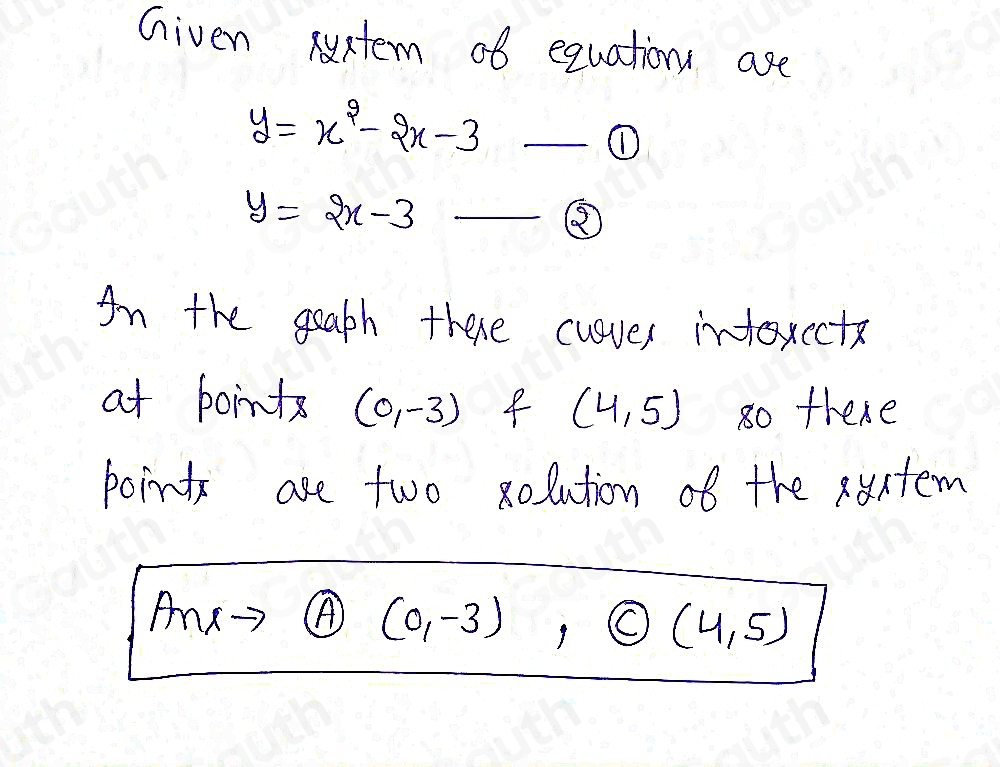 Given system of equations are
y = x² - 2x - 3 — ①
y = 2x - 3 — ②
In the graph these curves intersects
at points (0,-3) & (4,5) so these
points are two solution of the system
Ans → Ⓐ (0,-3) , Ⓒ (4,5)